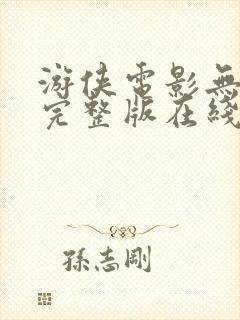 游侠電影無
完整版在綫
孫志剛